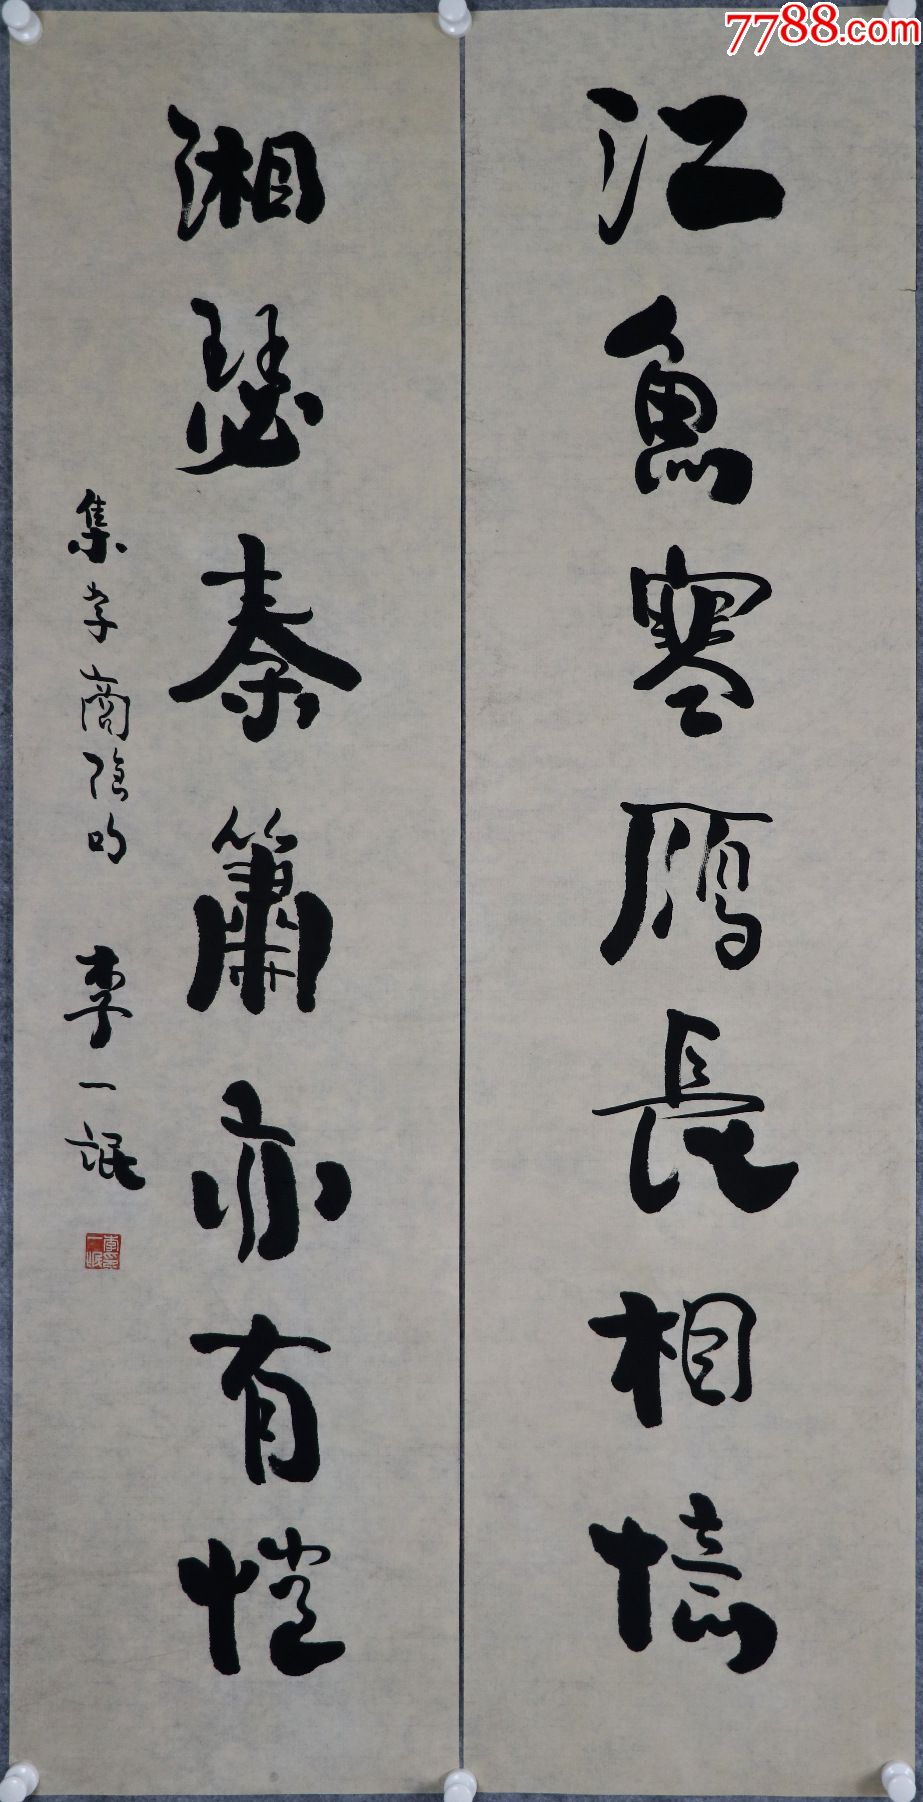 7788.com
江魚寒鴈長相憶
湘瑟秦簫亦有情
集李商隐句
李一氓